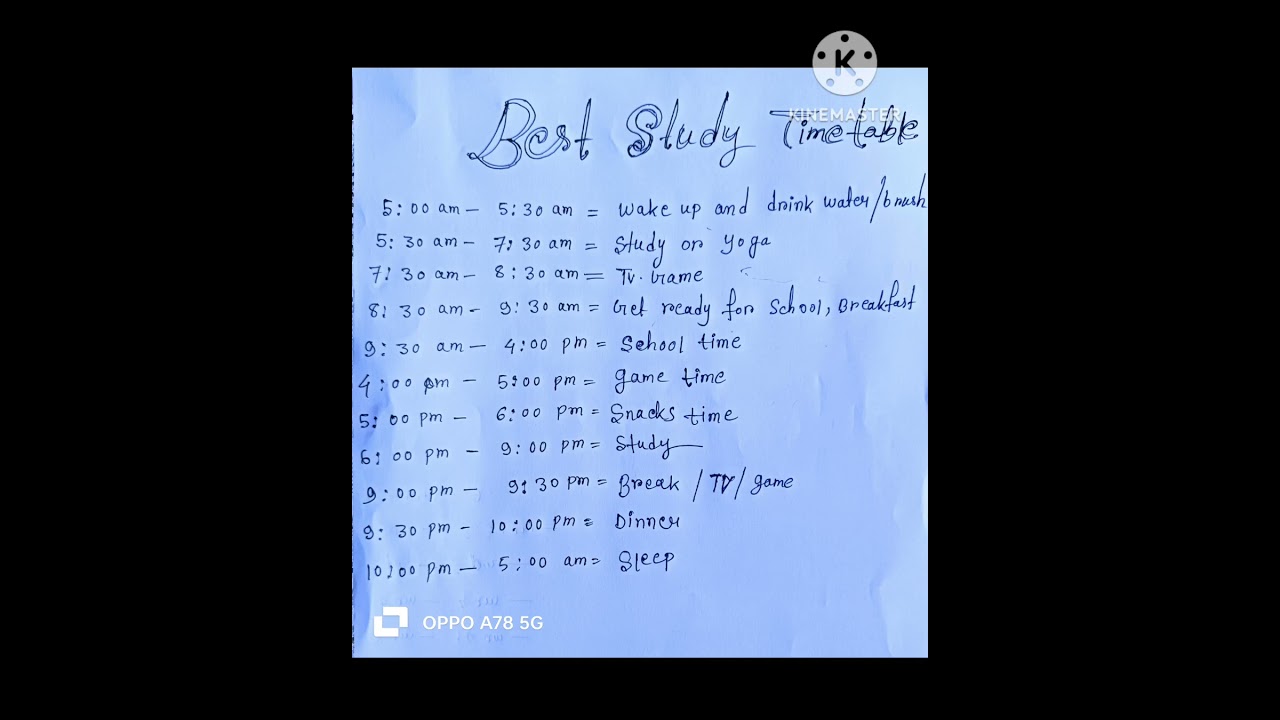 KINEMASTER
Best Study Timetable
5:00 am - 5:30 am = wake up and drink water/brush
5:30 am - 7:30 am = Study or yoga
7:30 am - 8:30 am = Tv. Game
8:30 am - 9:30 am = Get ready for School, Breakfast
9:30 am - 4:00 pm = School time
4:00 pm - 5:00 pm = game time
5:00 pm - 6:00 pm = Snacks time
6:00 pm - 9:00 pm = Study
9:00 pm - 9:30 pm = Break / TV / game
9:30 pm - 10:00 pm = Dinner
10:00 pm - 5:00 am = Sleep
OPPO A78 5G